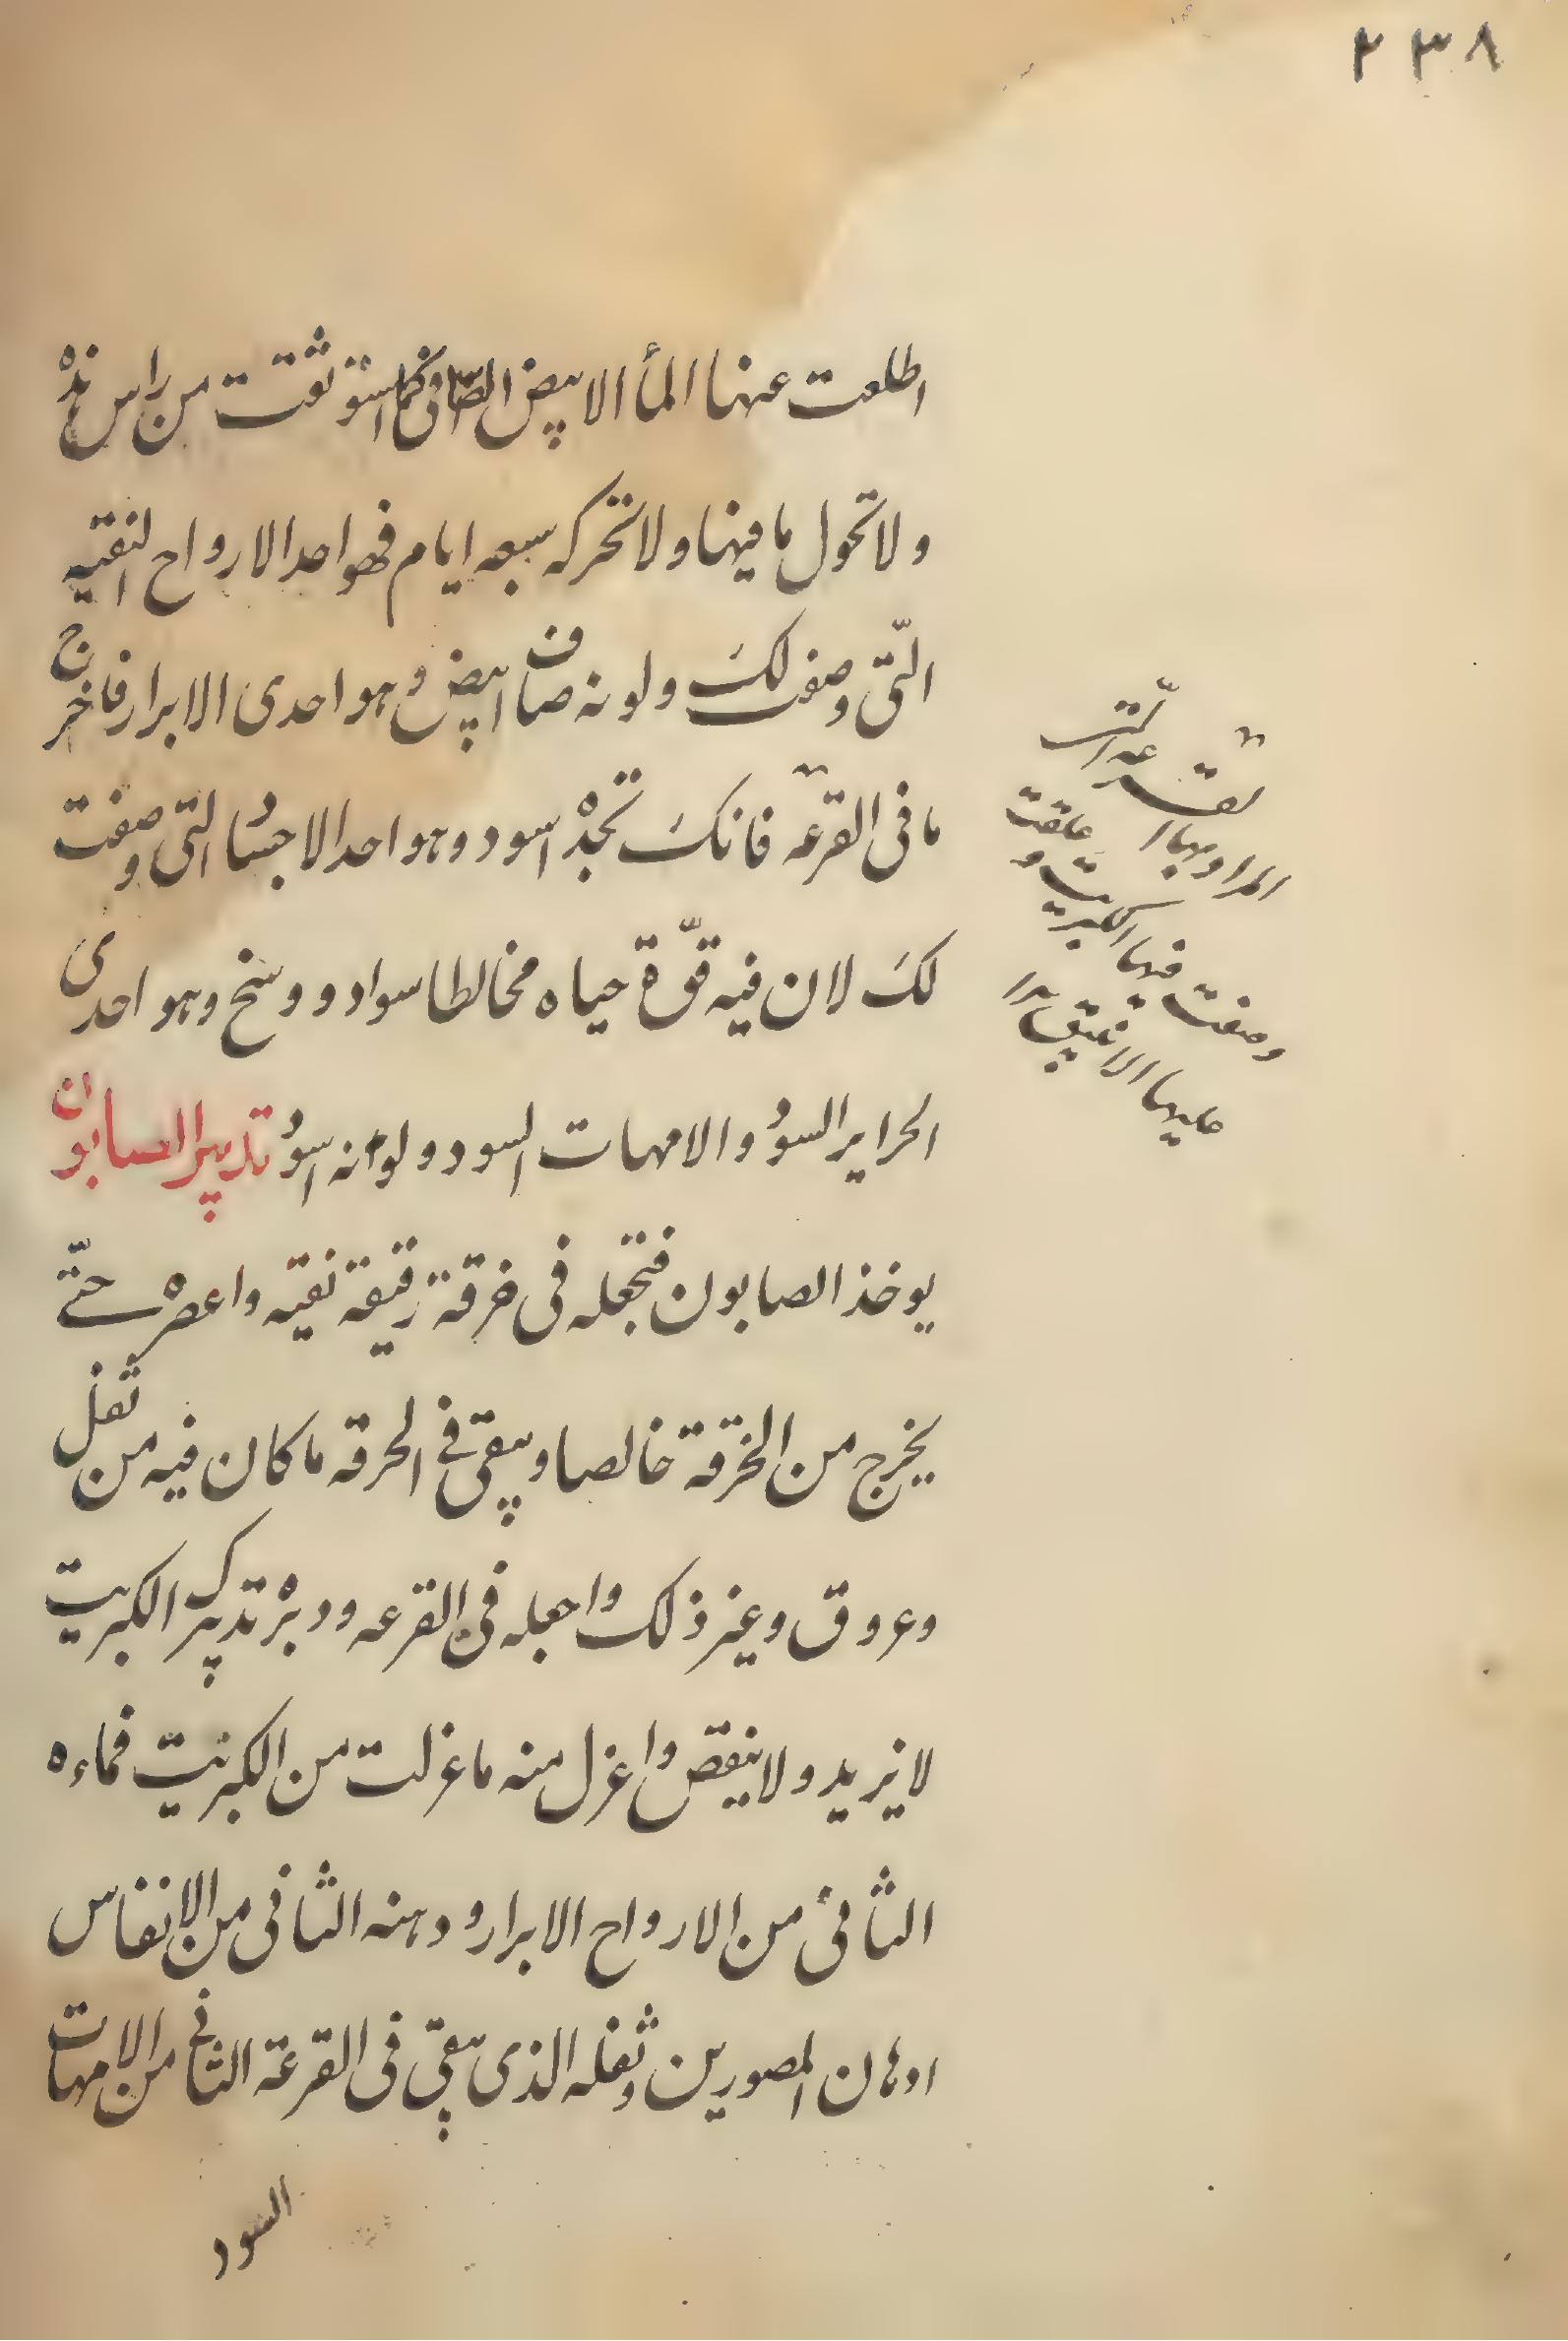 ٢٣٨
اطلعت عنها المأ الابيض الصافى فما استوثقت من راس هذه
ولا تحول ما فيها ولا تحركه سبعه ايام فهو احد الارواح النقيه
التّى وصفت لكَ ولونه صاف ابيض وهو احدى الابرار فاخرج
ما فى القرعه فانكَ تجده اسود وهو احد الاجساد التى وصفت
لكَ لان فيه قوّة حياه مخالطا سواد ووسخ وهو احدى
الحراير السود والامهات السود ولونه اسود تدبير الصابون
يوخذ الصابون فتجعله فى خرقة رقيقة نقيه واعصره حتّے
يخرج من الخرقة خالصا ويبقى فے الخرقه ما كان فيه من ثفل
وعروق وغير ذلك واجعله فى القرعه ودبره تدبيرك الكبريت
لا يزيد ولا ينقص واعزل منه ما عزلت من الكبريت فماءه
الثانى من الارواح الابرار ودهنه الثانى من الانفاس
ادهان المصورين وثفله الذى يبقى فى القرعة الثانے من الامهات
السود
القرعه الّتى
المراد بها
علقت
فيها الكبريت و
وصفت
عليها الانبيق